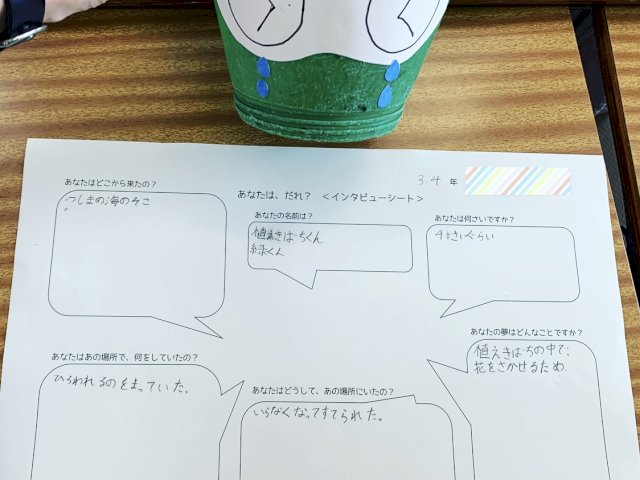 3.4 年
あなたは、だれ？ ＜インタビューシート＞
あなたはどこから来たの？
つしまの海のそこ
あなたの名前は？
植えきばーちくん
緑くん
あなたは何さいですか？
40さいぐらい
あなたはあの場所で、何をしていたの？
ひろわれるのをまっていた。
あなたはどうして、あの場所にいたの？
いらなくなってすてられた。
あなたの夢はどんなことですか？
植えきばちの中で、
花をさかせるため、